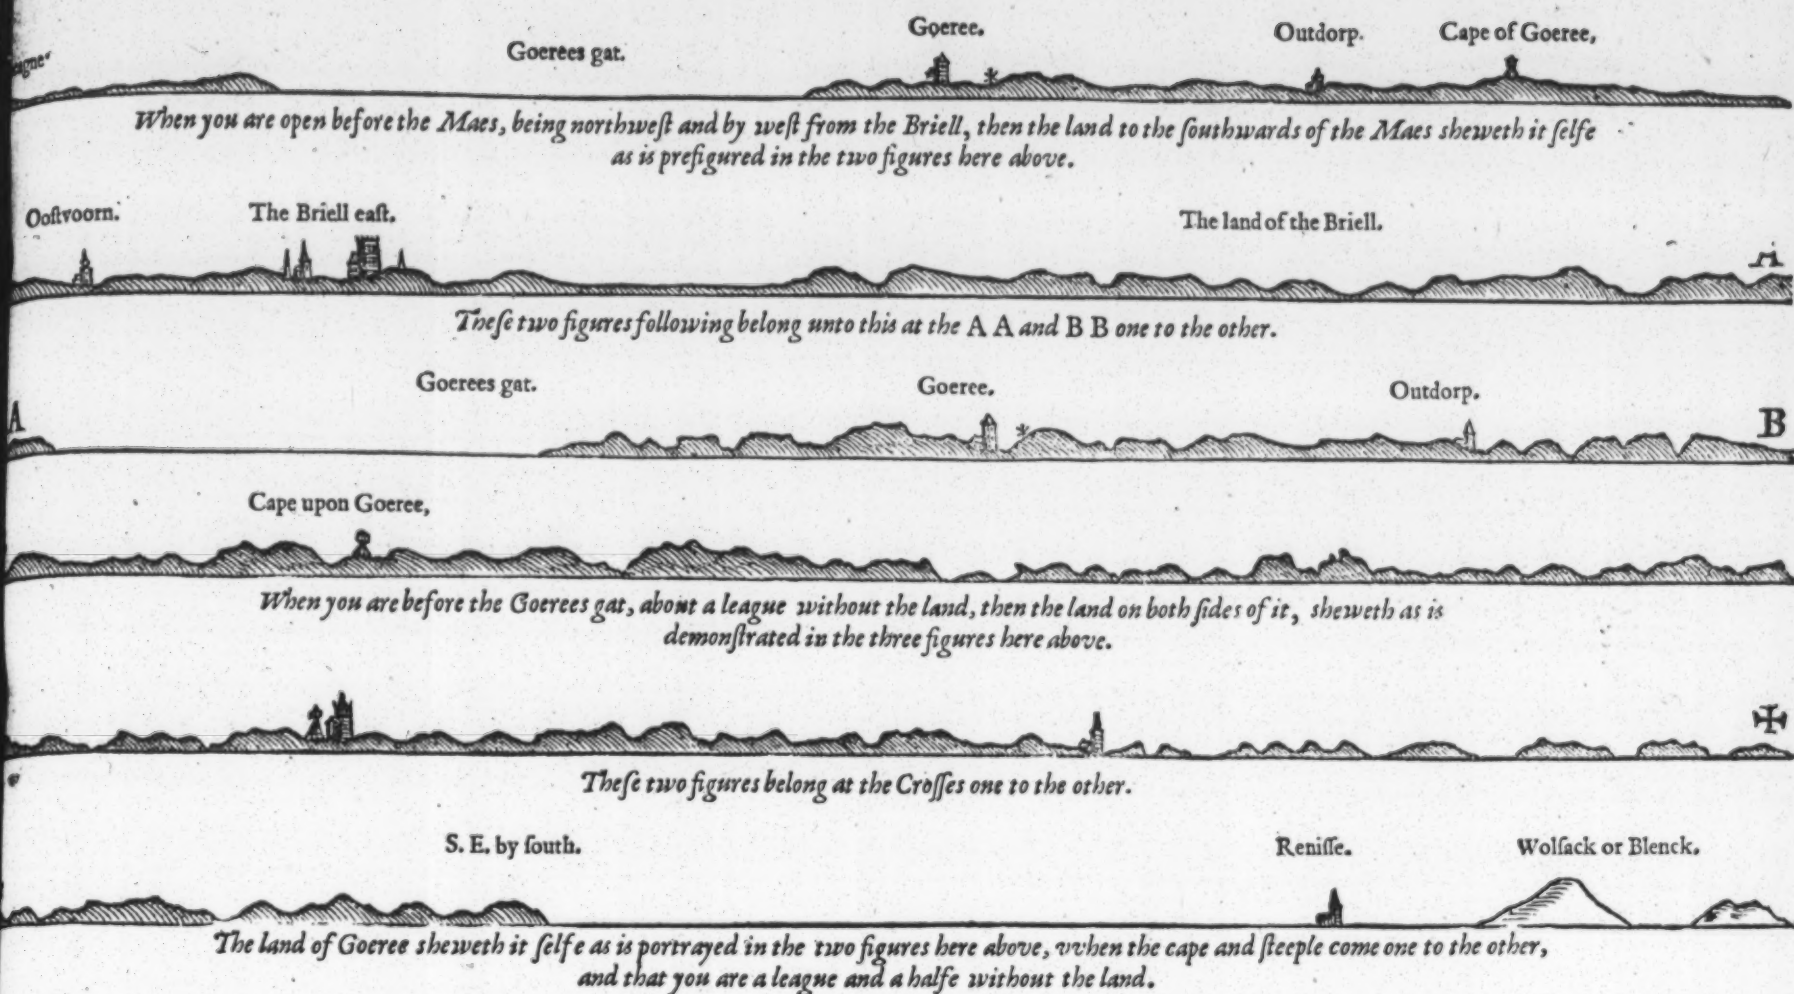 Goerees gat. Goeree. Outdorp. Cape of Goeree,
When you are open before the Maes, being northweſt and by weſt from the Briell, then the land to the ſouthwards of the Maes sheweth it ſelfe
as is prefigured in the two figures here above.
Ooſtvoorn. The Briell eaſt. The land of the Briell.
Theſe two figures following belong unto this at the A A and B B one to the other.
Goerees gat. Goeree. Outdorp.
A B
Cape upon Goeree,
When you are before the Goerees gat, about a league without the land, then the land on both ſides of it, sheweth as is
demonſtrated in the three figures here above.
Theſe two figures belong at the Croſſes one to the other.
S. E. by ſouth. Reniſſe. Wolſack or Blenck.
The land of Goeree sheweth it ſelfe as is portrayed in the two figures here above, vvhen the cape and ſteeple come one to the other,
and that you are a league and a halfe without the land.